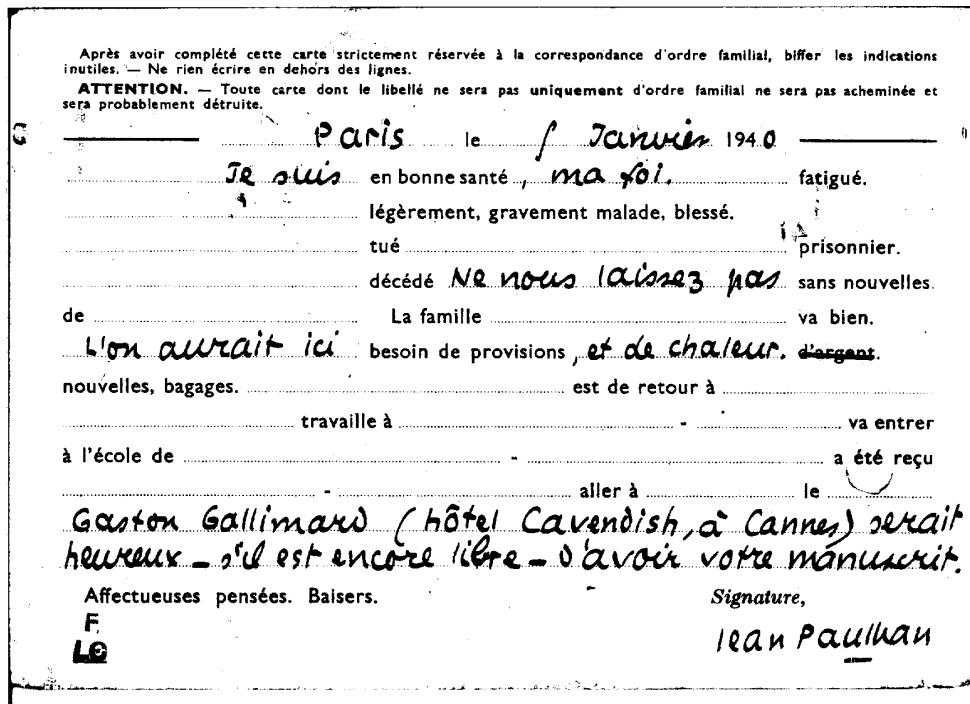 Après avoir complété cette carte strictement réservée à la correspondance d'ordre familial, biffer les indications
inutiles. — Ne rien écrire en dehors des lignes.
ATTENTION. — Toute carte dont le libellé ne sera pas uniquement d'ordre familial ne sera pas acheminée et
sera probablement détruite.
Paris le Janvier 1940
Je suis en bonne santé, ma foi. fatigué.
légèrement, gravement malade, blessé.
tué prisonnier.
décédé Ne nous laissez pas sans nouvelles.
de La famille va bien.
L'on aurait ici besoin de provisions, et de chaleur. d'argent.
nouvelles, bagages. est de retour à
travaille à - va entrer
à l'école de - a été reçu
- aller à le
Gaston Gallimard (hôtel Cavendish, à Cannes) serait
heureux - s'il est encore libre - d'avoir votre manuscrit.
Affectueuses pensées. Baisers. Signature,
Jean Paulhan